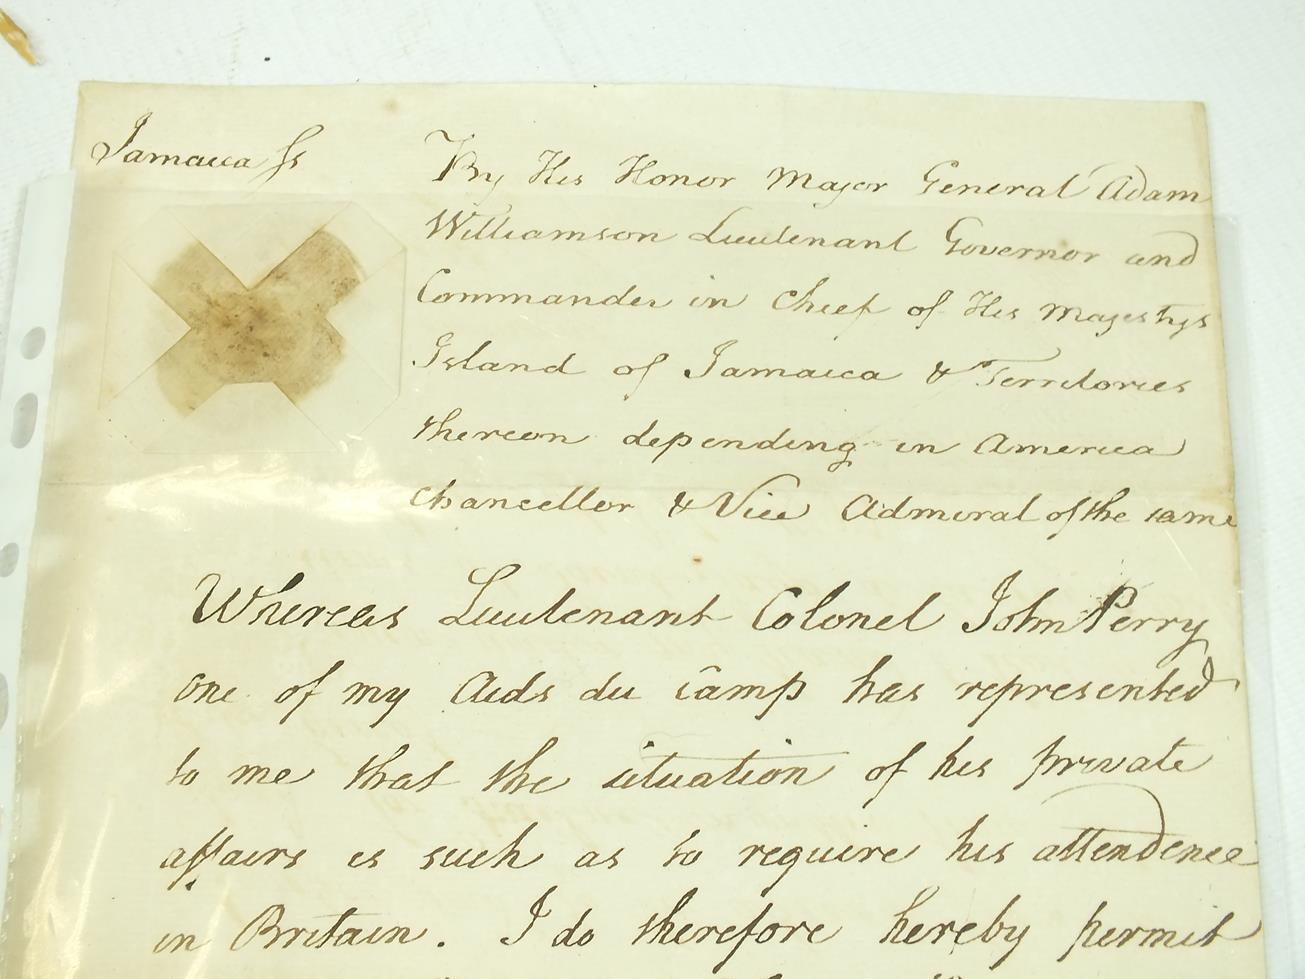 Jamaica ſs
By His Honor Major General Adam
Williamson Lieutenant Governor and
Commander in Chief of His Majestys
Island of Jamaica & Territories
thereon depending in America
Chancellor & Vice Admiral of the same
Whereas Lieutenant Colonel John Perry
one of my Aids du Camp has represented
to me that the situation of his private
affairs is such as to require his attendence
in Britain. I do therefore hereby permit